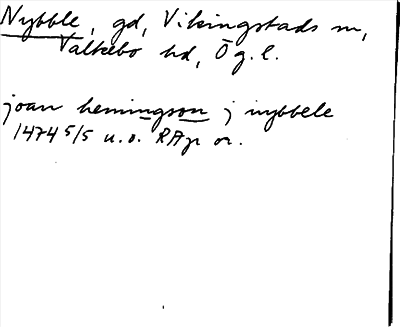 Nybble, gd, Vikingstads sn,
Valkebo hd, Ög. l.
joan hemingson j nybbele
1474 5/5 u.o. RAp or.